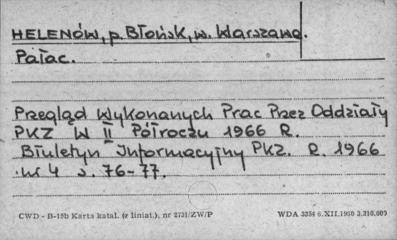 HELENÓW, p. Błońsk, w. Warszawa.
Pałac.
Przegląd Wykonanych Prac Przez Oddziały
PKZ W II Półroczu 1966 R.
Biuletyn Informacyjny PKZ. R. 1966
nr 4 s. 76-77.
CWD - B-15b Karta katal. (z liniat.), nr 2731/ZW/P
WDA 3354 6.XII.1960 3.210.000